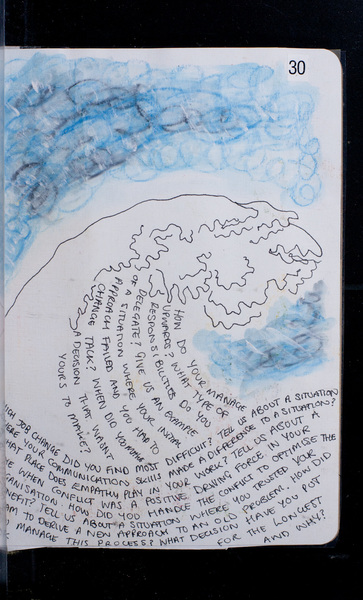 30
HOW DO YOU MANAGE
UPWARDS? WHAT TYPE OF
RESPONSIBILITIES DO YOU
DELEGATE? GIVE US AN EXAMPLE
OF A SITUATION WHERE YOUR INITIAL
APPROACH FAILED AND YOU HAD TO
CHANGE TACK? WHEN DID YOU
A DECISION THAT WASN'T
YOURS TO MAKE?
HICH JOB CHANGE DID YOU FIND MOST DIFFICULT? TELL US ABOUT A SITUATION
ERE YOUR COMMUNICATION SKILLS MADE A DIFFERENCE TO A SITUATION?
HAT PLACE DOES EMPATHY PLAY IN YOUR WORK? TELL US ABOUT A
E WHEN CONFLICT WAS A POSITIVE DRIVING FORCE IN YOUR
ANISATION. HOW DID YOU HANDLE THE CONFLICT TO OPTIMISE THE
NEFIT? TELL US ABOUT A SITUATION WHERE YOU TRUSTED YOUR
AM TO DERIVE A NEW APPROACH TO AN OLD PROBLEM. HOW DID
MANAGE THIS PROCESS? WHAT DECISION HAVE YOU PUT
FOR THE LONGEST
AND WHY?